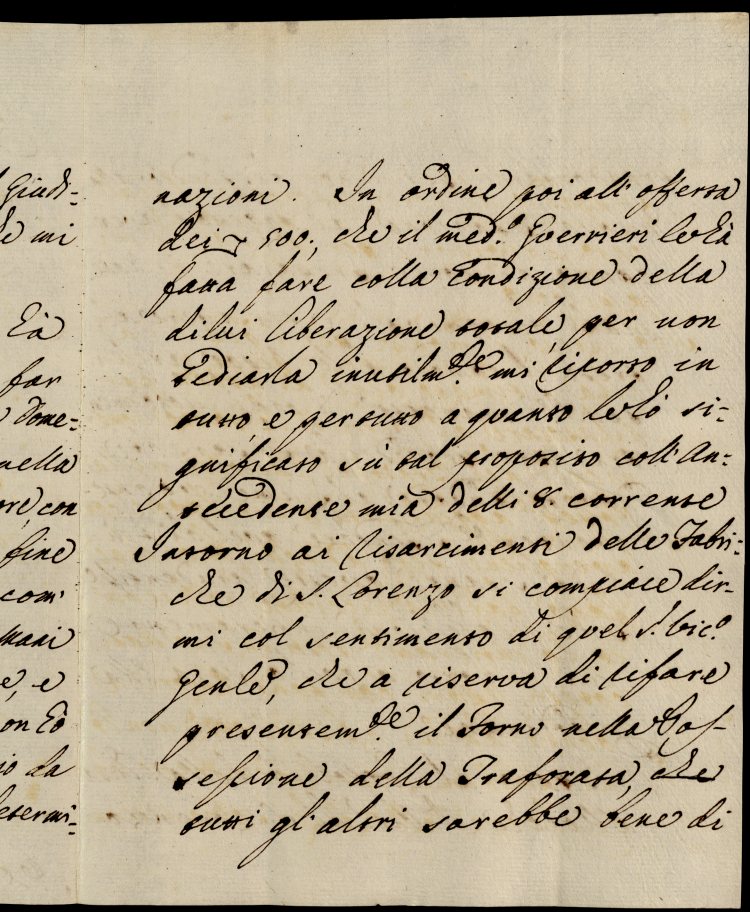 Giudi=
he mi
Ea
far
Dome=
nella
ore con
fine
com'
mani
e, e
on Eò
io da
etermi=
nazioni. In ordine poi all' offerta
dei 500., che il med.º Guerrieri
fava fare colla Condizione della
dilui liberazione totale, per non
tediarla inutilm.te mi riporto in
tutto, e per tutto a quanto si=
gnificato sù tal proposito coll' An=
tecedente mia delli 8. corrente
Intorno ai Risarcimenti delle Fabri=
che di S. Lorenzo si compiace dir-
mi col sentimento di quel S.r Vic.º
Gen.le, che a riserva di rifare
presentem.te il Forno nella Pos-
sessione della Traforata, che
tutti gl' altri sarebbe bene di